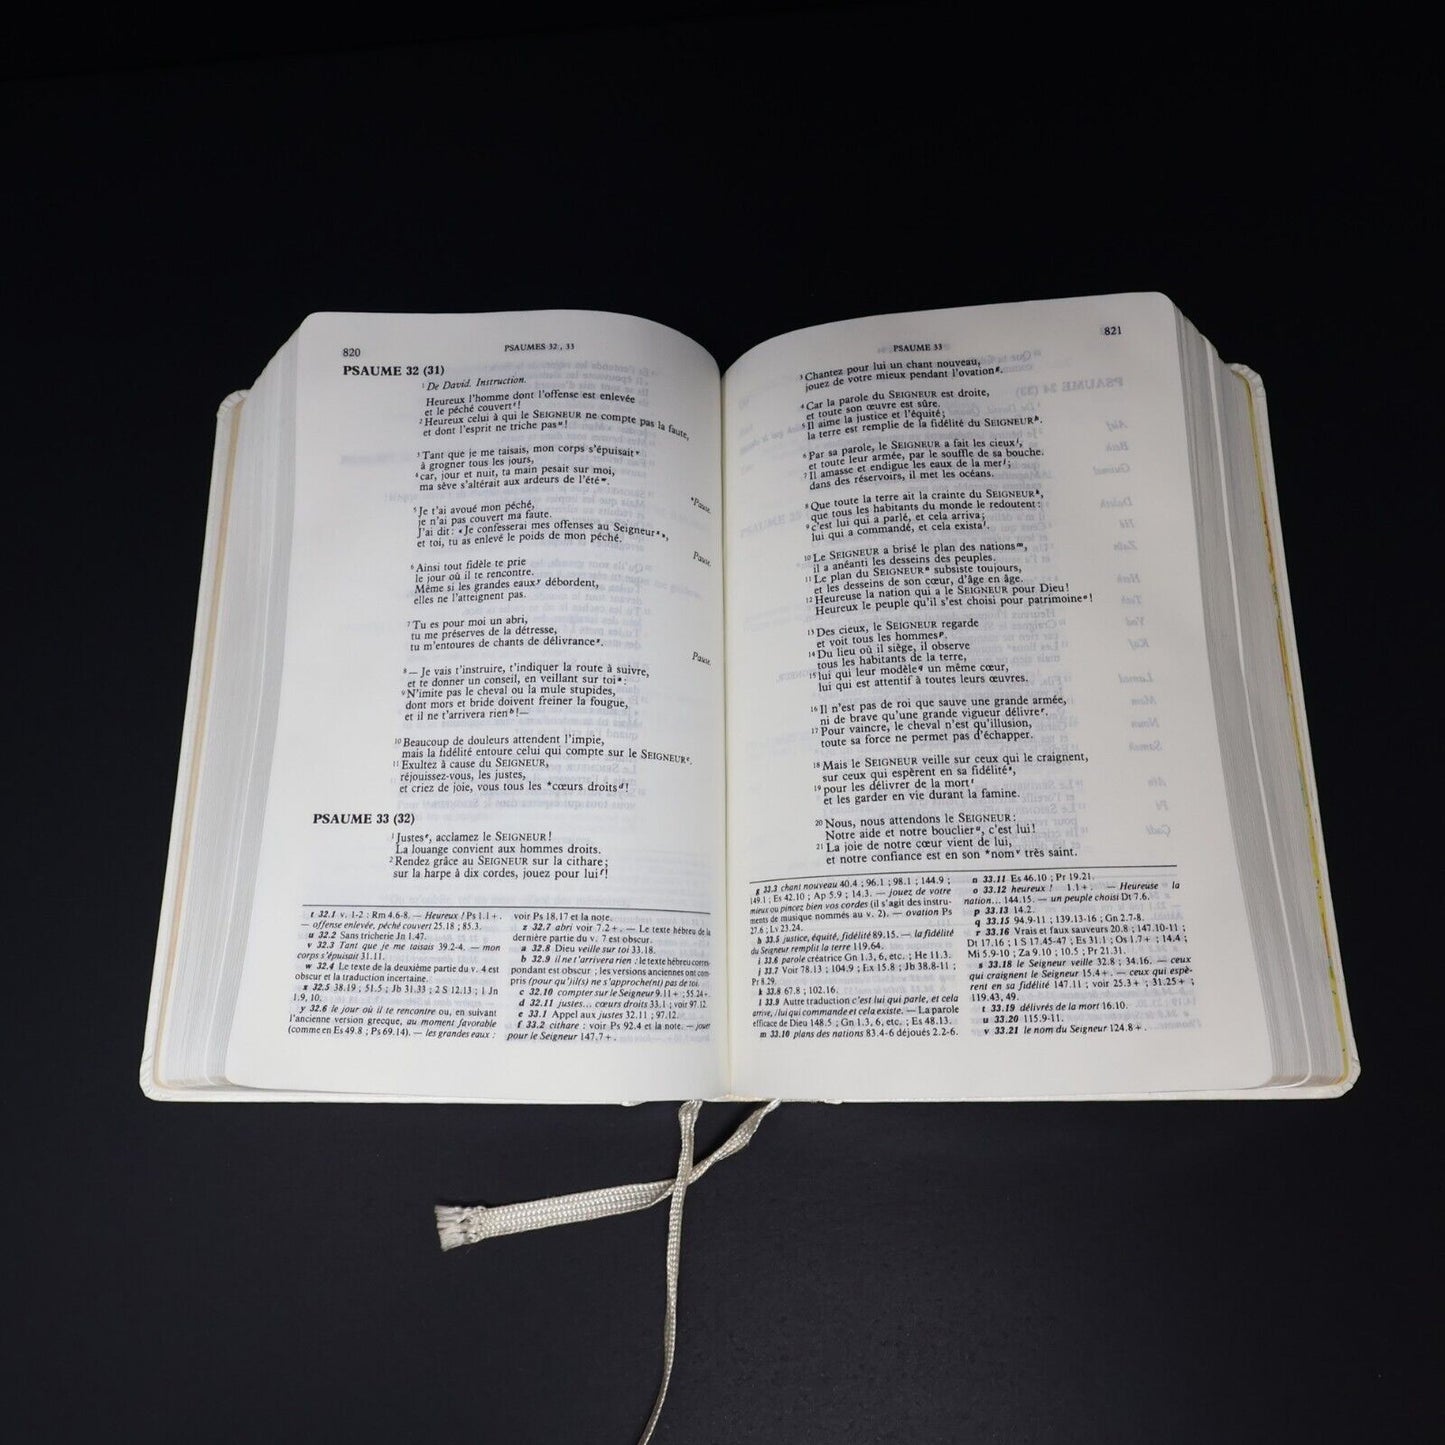 820
PSAUMES 32, 33
PSAUME 32 (31)
1 De David. Instruction.
Heureux l'homme dont l'offense est enlevée
et le péché couvert t!
2 Heureux celui à qui le SEIGNEUR ne compte pas la faute,
et dont l'esprit ne triche pas u!
3 Tant que je me taisais, mon corps s'épuisait v
à grogner tous les jours,
4 car, jour et nuit, ta main pesait sur moi,
ma sève s'altérait aux ardeurs de l'été w.
*Pause.
5 Je t'ai avoué mon péché,
je n'ai pas couvert ma faute.
J'ai dit : « Je confesserai mes offenses au Seigneur x »,
et toi, tu as enlevé le poids de mon péché.
Pause.
6 Ainsi tout fidèle te prie
le jour où il te rencontre.
Même si les grandes eaux y débordent,
elles ne l'atteignent pas.
7 Tu es pour moi un abri,
tu me préserves de la détresse,
tu m'entoures de chants de délivrance z.
Pause.
8 — Je vais t'instruire, t'indiquer la route à suivre,
et te donner un conseil, en veillant sur toi a :
9 N'imite pas le cheval ou la mule stupides,
dont mors et bride doivent freiner la fougue,
et il ne t'arrivera rien b ! —
10 Beaucoup de douleurs attendent l'impie,
mais la fidélité entoure celui qui compte sur le SEIGNEUR c.
11 Exultez à cause du SEIGNEUR,
réjouissez-vous, les justes,
et criez de joie, vous tous les *cœurs droits d!
PSAUME 33 (32)
1 Justes e, acclamez le SEIGNEUR!
La louange convient aux hommes droits.
2 Rendez grâce au SEIGNEUR sur la cithare;
sur la harpe à dix cordes, jouez pour lui f!
t 32.1 v. 1-2 : Rm 4.6-8. — Heureux ! Ps 1.1 +.
— offense enlevée, péché couvert 25.18 ; 85.3.
u 32.2 Sans tricherie Jn 1.47.
v 32.3 Tant que je me taisais 39.2-4. — mon
corps s'épuisait 31.11.
w 32.4 Le texte de la deuxième partie du v. 4 est
obscur et la traduction incertaine.
x 32.5 38.19 ; 51.5 ; Jb 31.33 ; 2 S 12.13 ; 1 Jn
1.9, 10.
y 32.6 le jour où il te rencontre ou, en suivant
l'ancienne version grecque, au moment favorable
(comme en Es 49.8 ; Ps 69.14). — les grandes eaux :
voir Ps 18.17 et la note.
z 32.7 abri voir 7.2 +. — Le texte hébreu de la
dernière partie du v. 7 est obscur.
a 32.8 Dieu veille sur toi 33.18.
b 32.9 il ne t'arrivera rien : le texte hébreu correspondant
est obscur ; les versions anciennes ont compris
(pour qu')il(s) ne s'approche(nt) pas de toi.
c 32.10 compter sur le Seigneur 9.11 + ; 55.24 +.
d 32.11 justes... cœurs droits 33.1 ; voir 97.12.
e 33.1 Appel aux justes 32.11 ; 97.12.
f 33.2 cithare : voir Ps 92.4 et la note. — jouer
pour le Seigneur 147.7 +.
PSAUME 33
821
3 Chantez pour lui un chant nouveau,
jouez de votre mieux pendant l'ovation g.
4 Car la parole du SEIGNEUR est droite,
et toute son œuvre est sûre.
5 Il aime la justice et l'équité;
la terre est remplie de la fidélité du SEIGNEUR h.
6 Par sa parole, le SEIGNEUR a fait les cieux i,
et toute leur armée, par le souffle de sa bouche.
7 Il amasse et endigue les eaux de la mer j;
dans des réservoirs, il met les océans.
8 Que toute la terre ait la crainte du SEIGNEUR k,
que tous les habitants du monde le redoutent :
9 c'est lui qui a parlé, et cela arriva;
lui qui a commandé, et cela exista l.
10 Le SEIGNEUR a brisé le plan des nations m,
il a anéanti les desseins des peuples.
11 Le plan du SEIGNEUR n subsiste toujours,
et les desseins de son cœur, d'âge en âge.
12 Heureuse la nation qui a le SEIGNEUR pour Dieu!
Heureux le peuple qu'il s'est choisi pour patrimoine o!
13 Des cieux, le SEIGNEUR regarde
et voit tous les hommes p.
14 Du lieu où il siège, il observe
tous les habitants de la terre,
15 lui qui leur modèle q un même cœur,
lui qui est attentif à toutes leurs œuvres.
16 Il n'est pas de roi que sauve une grande armée,
ni de brave qu'une grande vigueur délivre r.
17 Pour vaincre, le cheval n'est qu'illusion,
toute sa force ne permet pas d'échapper.
18 Mais le SEIGNEUR veille sur ceux qui le craignent,
sur ceux qui espèrent en sa fidélité s,
19 pour les délivrer de la mort t
et les garder en vie durant la famine.
20 Nous, nous attendons le SEIGNEUR :
Notre aide et notre bouclier u, c'est lui!
21 La joie de notre cœur vient de lui,
et notre confiance est en son *nom v très saint.
g 33.3 chant nouveau 40.4 ; 96.1 ; 98.1 ; 144.9 ;
149.1 ; Es 42.10 ; Ap 5.9 ; 14.3. — jouez de votre
mieux ou pincez bien vos cordes (il s'agit des instruments
de musique nommés au v. 2). — ovation Ps
27.6 ; Lv 23.24.
h 33.5 justice, équité, fidélité 89.15. — la fidélité
du Seigneur remplit la terre 119.64.
i 33.6 parole créatrice Gn 1.3, 6, etc. ; He 11.3.
j 33.7 Voir 78.13 ; 104.9 ; Ex 15.8 ; Jb 38.8-11 ;
Pr 8.29.
k 33.8 67.8 ; 102.16.
l 33.9 Autre traduction c'est lui qui parle, et cela
arrive, / lui qui commande et cela existe. — La parole
efficace de Dieu 148.5 ; Gn 1.3, 6, etc. ; Es 48.13.
m 33.10 plans des nations 83.4-6 déjoués 2.2-6.
n 33.11 Es 46.10 ; Pr 19.21.
o 33.12 heureux ! 1.1 +. — Heureuse la
nation... 144.15. — un peuple choisi Dt 7.6.
p 33.13 14.2.
q 33.15 94.9-11 ; 139.13-16 ; Gn 2.7-8.
r 33.16 Vrais et faux sauveurs 20.8 ; 147.10-11 ;
Dt 17.16 ; 1 S 17.45-47 ; Es 31.1 ; Os 1.7 + ; 14.4 ;
Mi 5.9-10 ; Za 9.10 ; 10.5 ; Pr 21.31.
s 33.18 le Seigneur veille 32.8 ; 34.16. — ceux
qui craignent le Seigneur 15.4 +. — ceux qui espèrent
en sa fidélité 147.11 ; voir 25.3 + ; 31.25 + ;
119.43, 49.
t 33.19 délivrés de la mort 16.10.
u 33.20 115.9-11.
v 33.21 le nom du Seigneur 124.8 +.